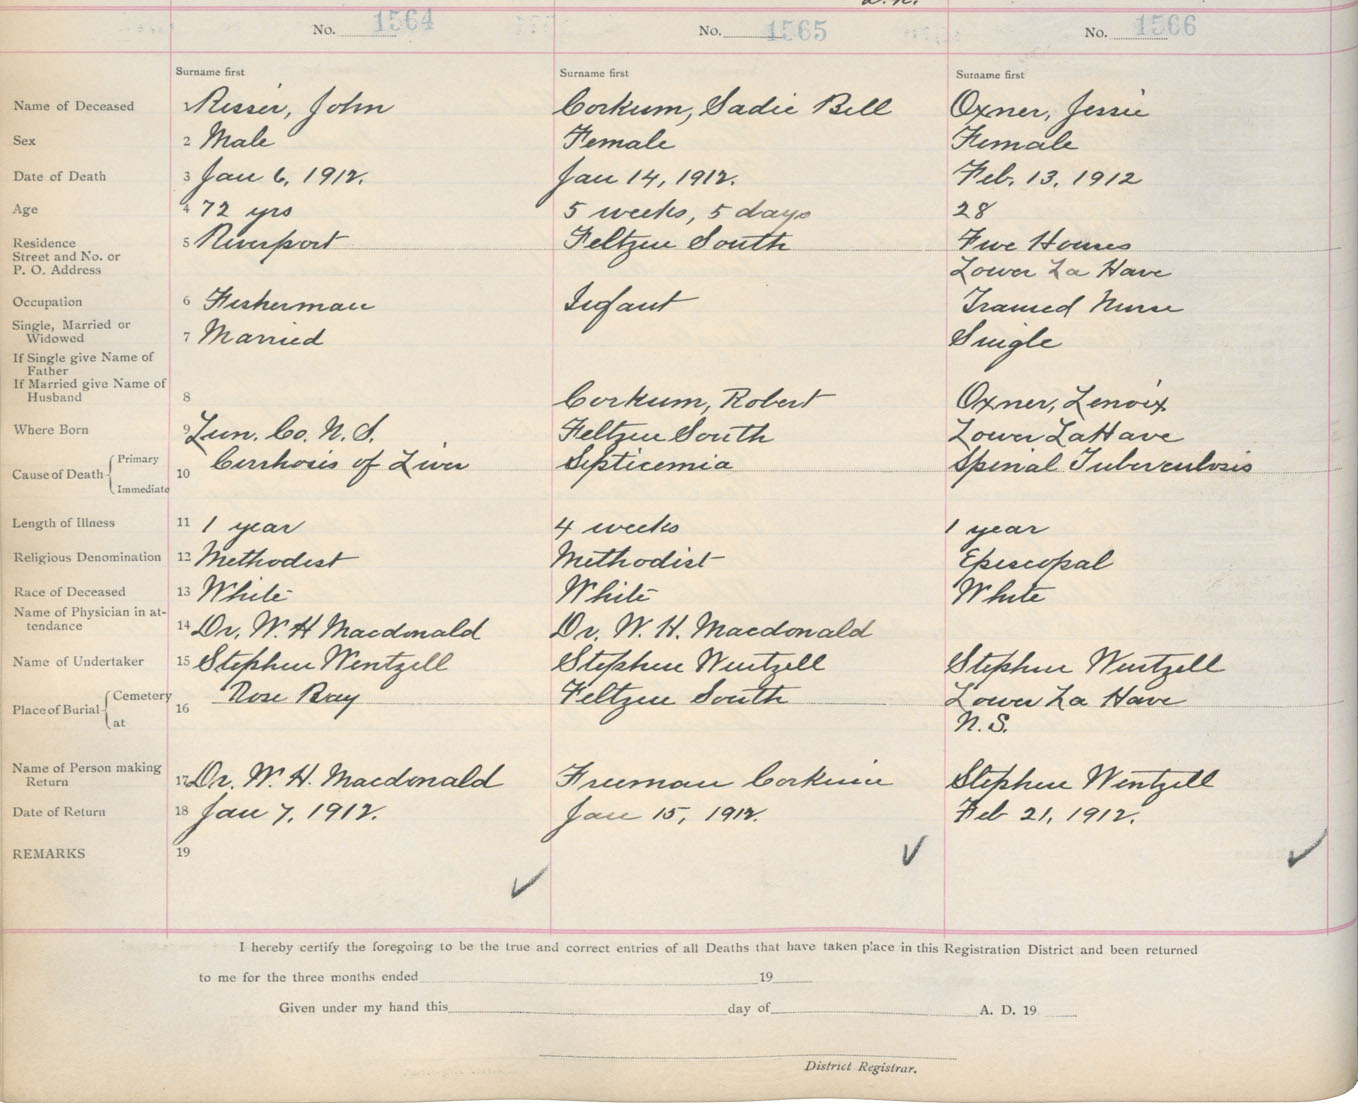 No. 1564 No. 1565 No. 1566
Surname first Surname first Surname first
Name of Deceased 1 Risser, John Corkum, Sadie Bell Oxner, Jessie
Sex 2 Male Female Female
Date of Death 3 Jan 6, 1912. Jan 14, 1912. Feb. 13, 1912
Age 4 72 yrs 5 weeks, 5 days 28
Residence 5 Riverport Feltzen South Five Houses
Street and No. or
P. O. Address Lower La Have
Occupation 6 Fisherman Infant Trained Nurse
Single, Married or
Widowed 7 Married Single
If Single give Name of
Father
If Married give Name of
Husband 8 Corkum, Robert Oxner, Lenoix
Where Born 9 Lun. Co. N. S. Feltzen South Lower LaHave
Cause of Death Primary 10 Cirrhosis of Liver Septicemia Spinal Tuberculosis
Immediate
Length of Illness 11 1 year 4 weeks 1 year
Religious Denomination 12 Methodist Methodist Episcopal
Race of Deceased 13 White White White
Name of Physician in at-
tendance 14 Dr. W. H Macdonald Dr. W. H. Macdonald
Name of Undertaker 15 Stephen Wentzell Stephen Wentzell Stephen Wentzell
Place of Burial Cemetery 16 Rose Bay Feltzen South Lower La Have
at N.S.
Name of Person making
Return 17 Dr. W. H. Macdonald Freeman Corkum Stephen Wentzell
Date of Return 18 Jan 7, 1912. Jan 15, 1912. Feb 21, 1912.
REMARKS 19
I hereby certify the foregoing to be the true and correct entries of all Deaths that have taken place in this Registration District and been returned
to me for the three months ended 19
Given under my hand this day of A. D. 19
District Registrar.